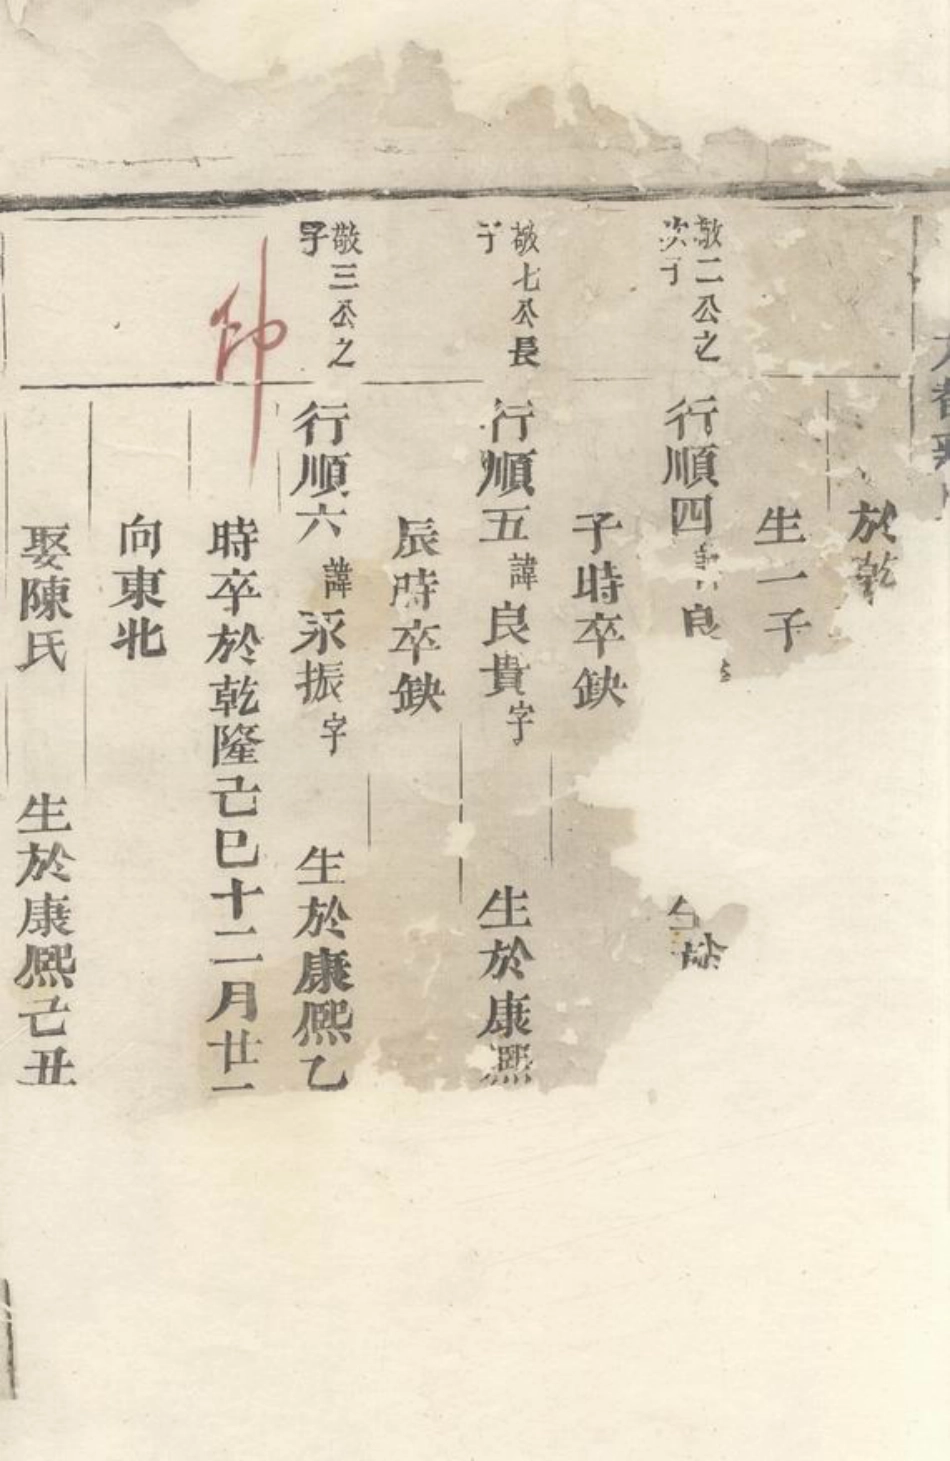 於乾
生一子
敬二公之
次子
行順四諱良
生於
子時卒缺
敬七公長
子
行順五諱良貴字 生於康熙
辰時卒缺
敬三公之
子
行順六諱永振字 生於康熙乙
時卒於乾隆己巳十二月廿一
向東北
娶陳氏 生於康熙己丑